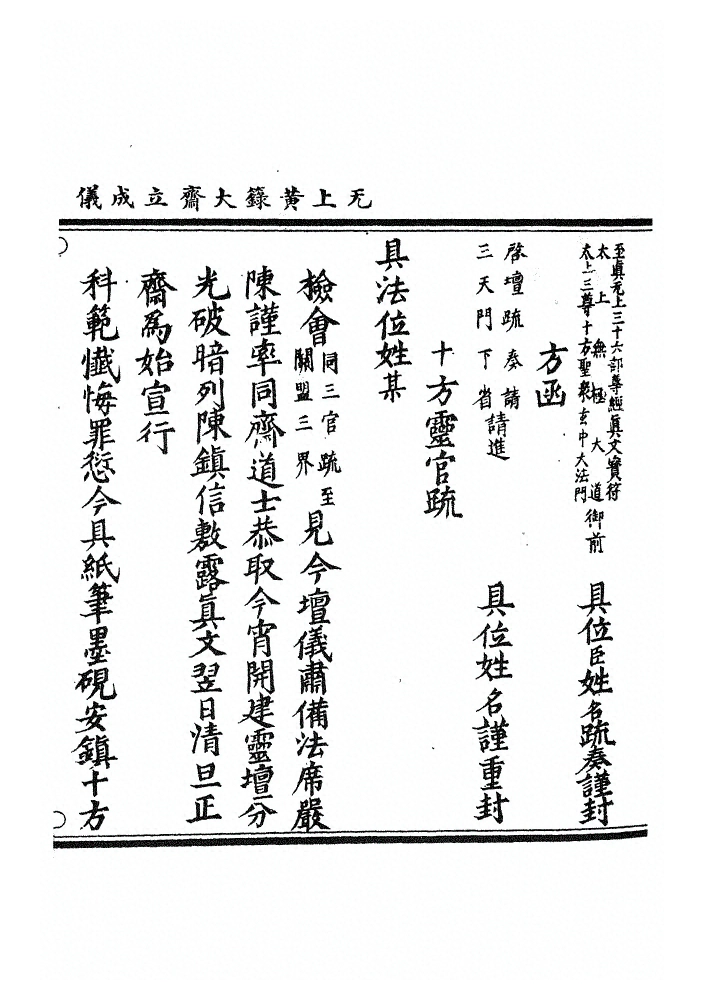 无上黃籙大齋立成儀
至眞无上三十六部尊經眞文寶符
太上無極大道
太上三尊十方聖衆玄中大法門
御前
具位臣姓名疏奏謹封
方函
啓壇疏奏請
三天門下省請進
具位姓名謹重封
十方靈官疏
具法位姓某
檢會同三官疏至關盟三界見今壇儀肅備法席嚴
陳謹率同齋道士恭取今宵開建靈壇分
光破暗列陳鎮信敷露眞文翌日清旦正
齋爲始宣行
科範懺悔罪愆今具紙筆墨硯安鎮十方